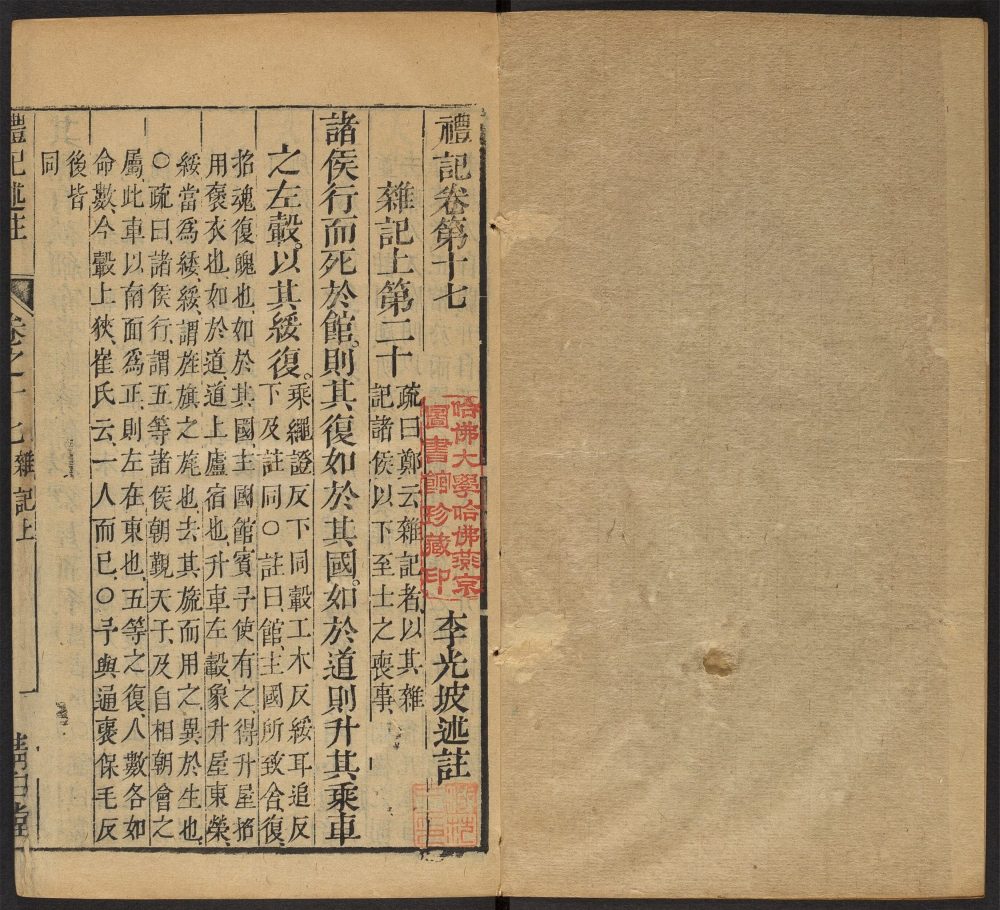 禮記卷第十七
李光坡述註
哈佛大學哈佛燕京
圖書館珍藏印
雜記上第二十
疏曰鄭云雜記者以其雜
記諸侯以下至士之喪事
諸侯行而死於館則其復如於其國如於道則升其乘車
之左轂以其綏復
乘繩證反下同轂工木反綏耳追反
下及註同○註曰館主國所致舍復
招魂復魄也如於其國主國館賓予使有之得升屋招
用褒衣也如於道道上廬宿也升車左轂象升屋東榮
綏當爲緌緌謂旌旗之旄也去其旒而用之異於生也
○疏曰諸侯行謂五等諸侯朝覲天子及自相朝會之
屬此車以南面爲正則左在東也五等之復人數各如
命數今轂上狹崔氏云一人而已○予與通褒保毛反
後皆
同
禮記述註
卷之十七雜記上